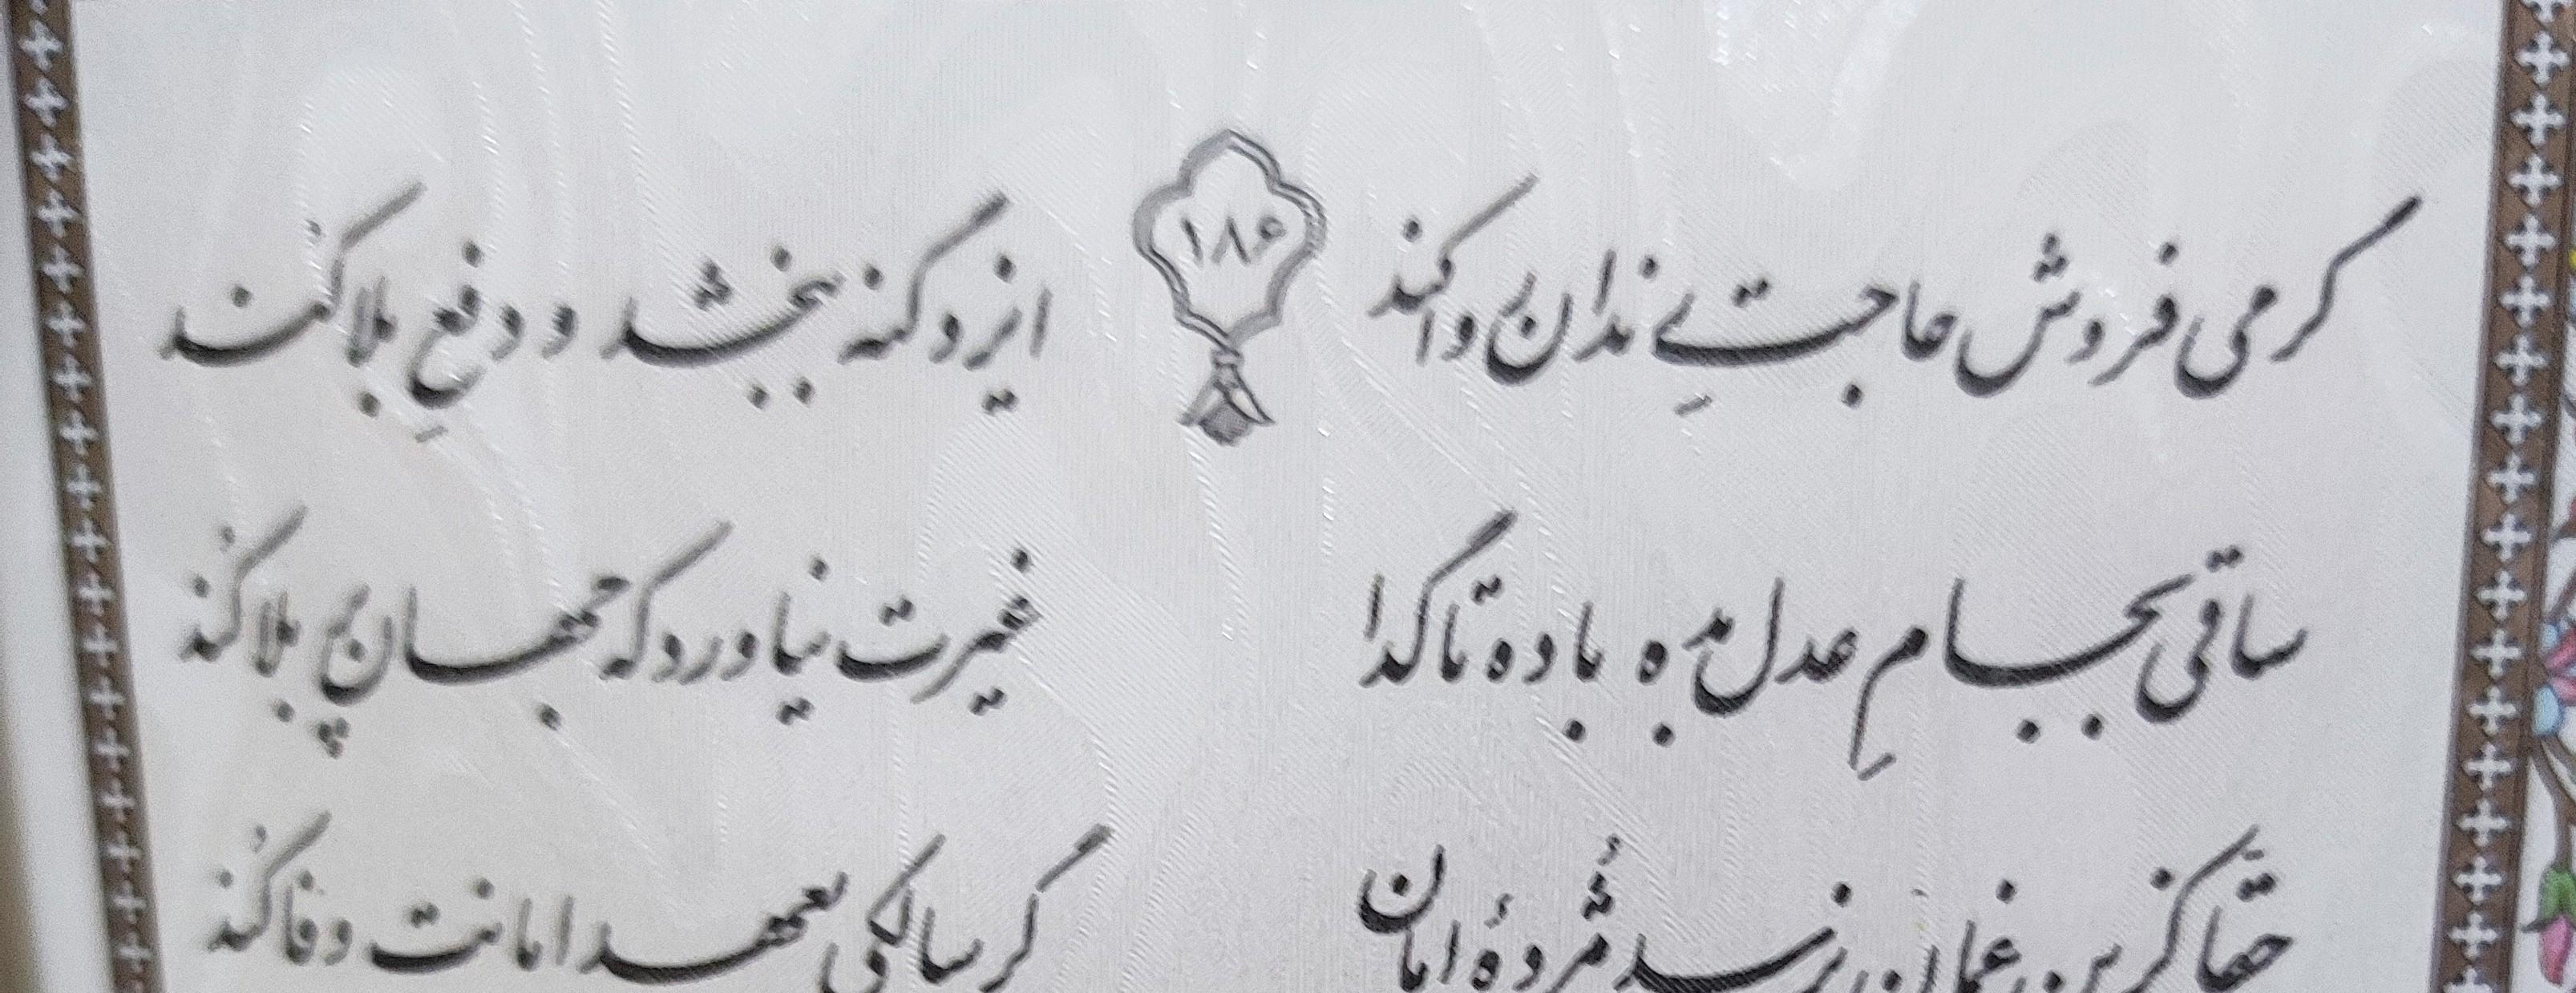 ۱۸۶
گر می فروش حاجتِ رندان روا کند ایزد گنه ببخشد و دفعِ بلا کند
ساقی بجامِ عدل بده باده تا گدا غیرت نیاورد که جهان پر بلا کُند
حقّا کزین غمان برسد مُژدهٔ امان گر سالکی بعهد امانت وفا کُند